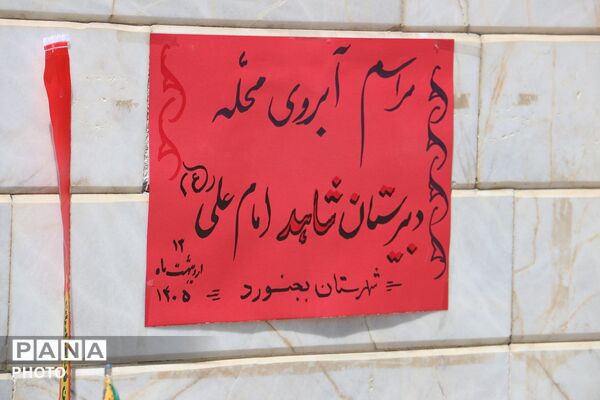 مراسم آبروی محلّه
دبیرستان شاهد امام علی (ع)
۱۲
اردیبهشت ماه
۱۴۰۵
= شهرستان بجنورد =
PANA
PHOTO